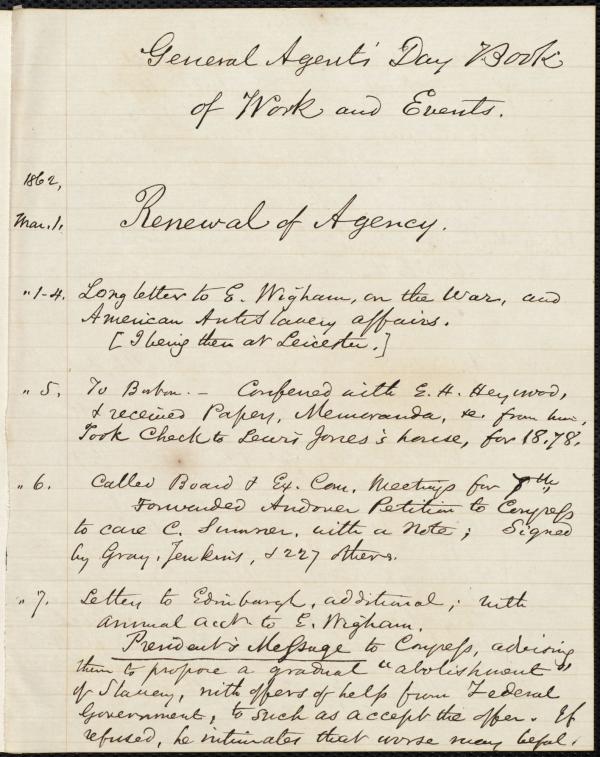 General Agents' Day Book
of Work and Events.
1862,
Mar. 1. Renewal of Agency.
" 1-4. Long letter to E. Wigham, on the War, and
American Antislavery affairs.
[I being then at Leicester.]
" 5. To Boston. – Conferred with E. H. Heywood,
& received Papers, Memoranda, &c. from him,
Took Check to Lewis Jones's house, for 18.78.
" 6. Called Board & Ex. Com. Meetings for 7th,
Forwarded Andover Petition to Congress
to care C. Sumner, with a Note; Signed
by Gray, Jenkins, & 227 others.
" 7. Letter to Edinburgh, additional; with
annual acct. to E. Wigham.
President's Message to Congress, advising
them to propose a gradual "abolishment"
of Slavery, with offers of help from Federal
Government, to such as accept the offer. If
refused, he intimates that worse may befal.